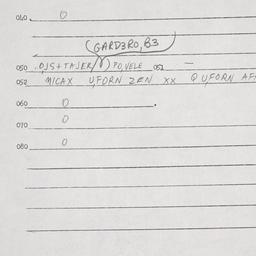 040 0
(GARD3RO, B3
050 .OJS+TAJER/ ) PO, VELE 051 —
052 MICAX UFORN ZEN XX Q UFORN AF
060 0
070 0
080 0